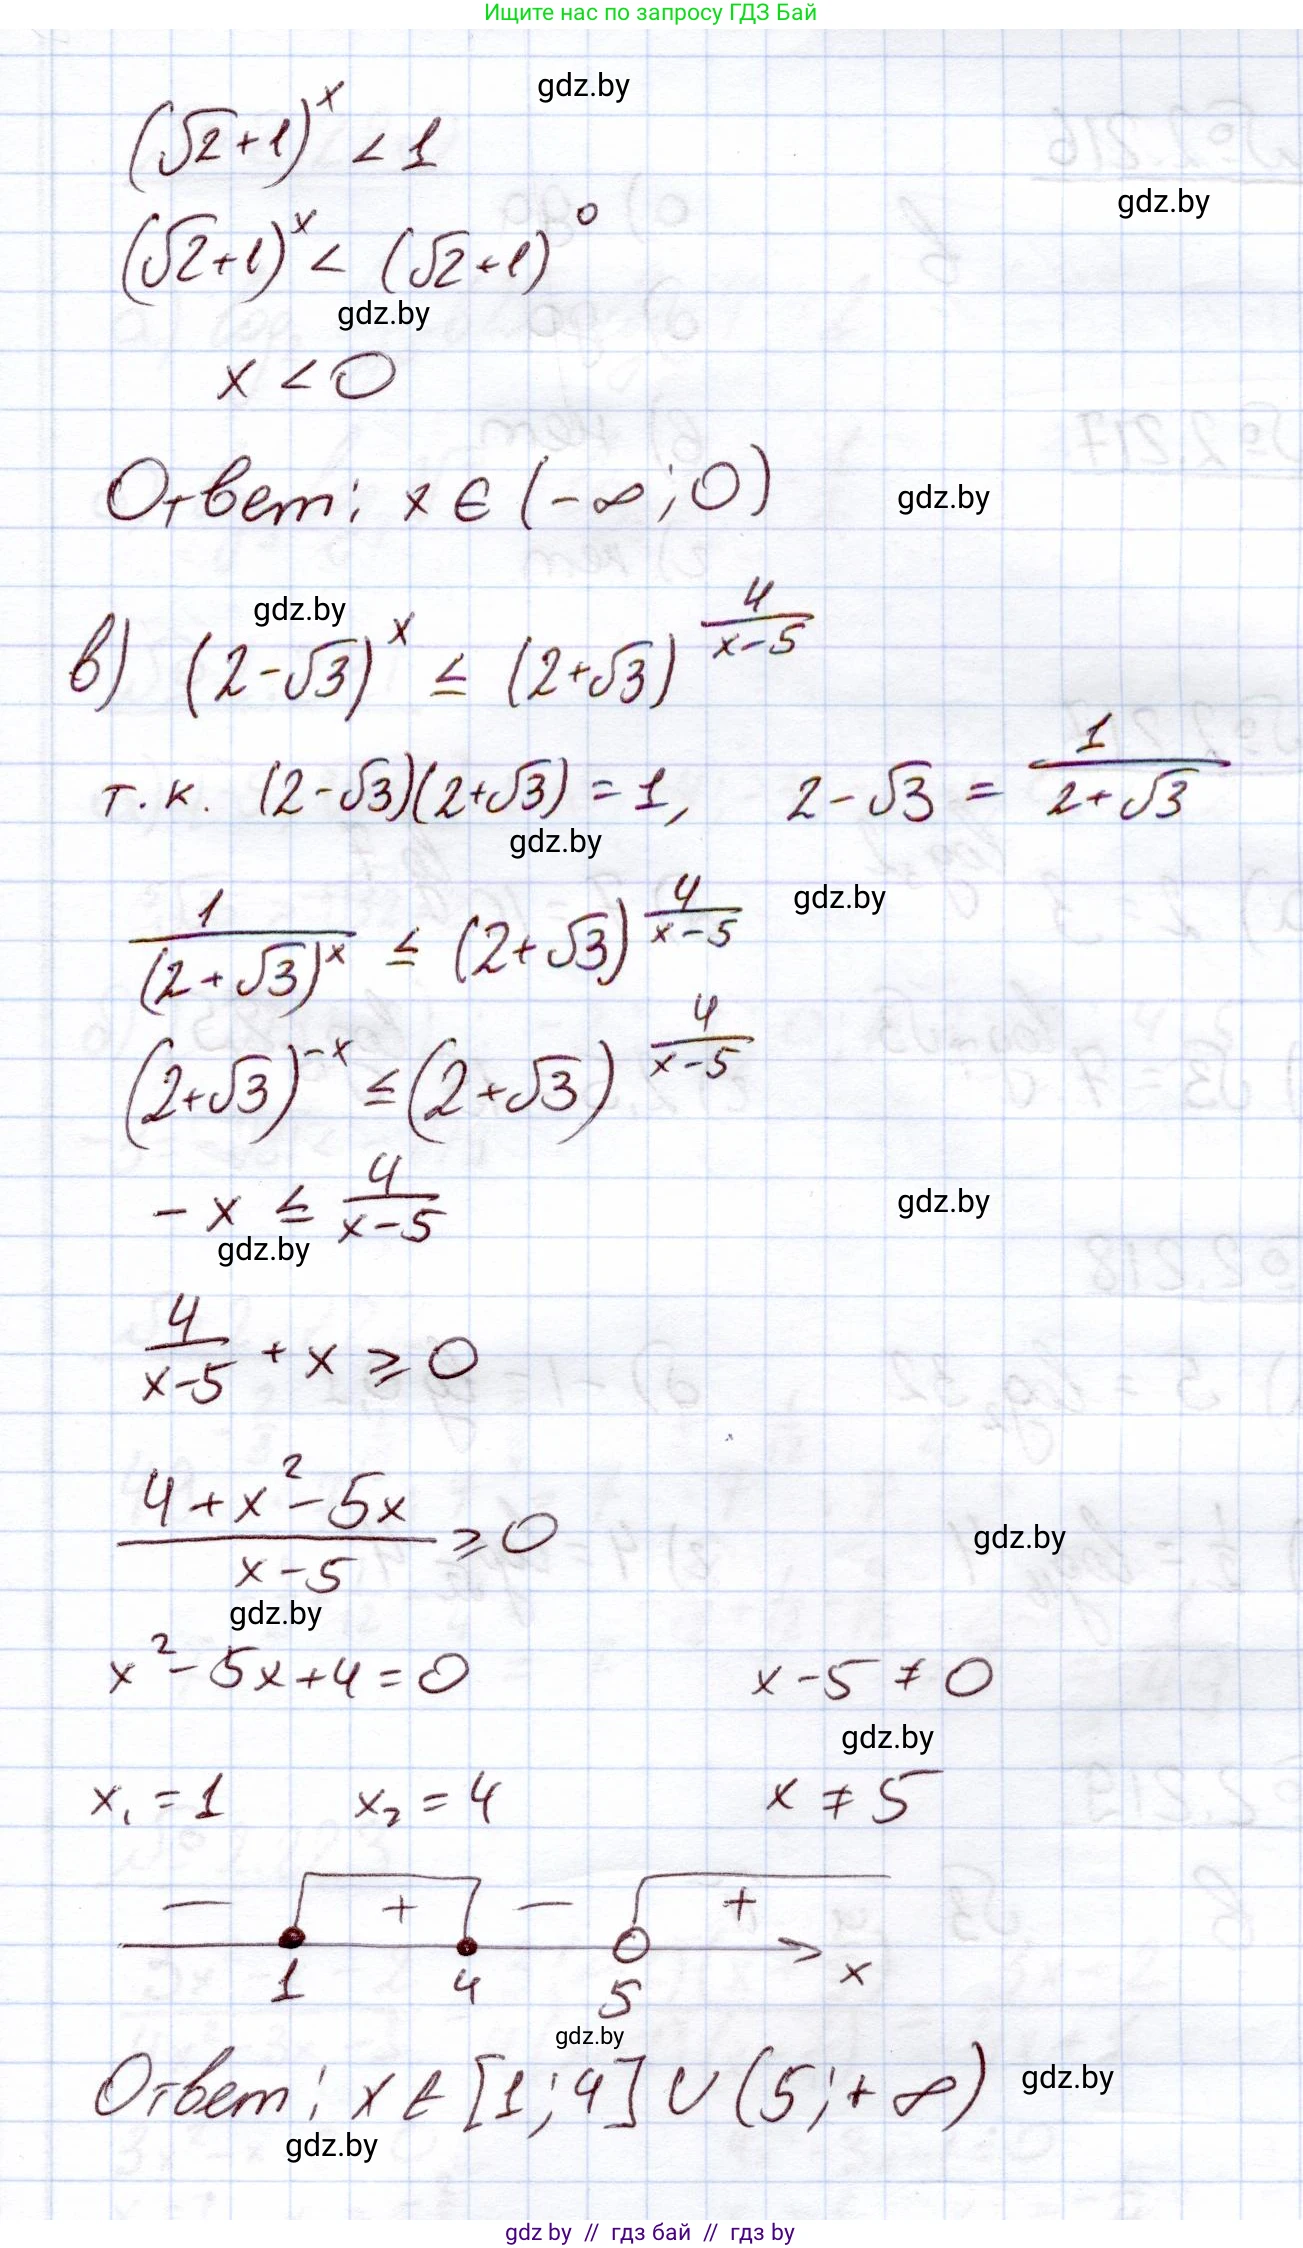 Ищите нас по запросу ГДЗ Бай
gdz.by
(√2+1)^x < 1
gdz.by
(√2+1)^x < (√2+1)^0
gdz.by
x < 0
Ответ: x ∈ (-∞; 0)
gdz.by
gdz.by
в) (2-√3)^x ≤ (2+√3)^(4/(x-5))
т.к. (2-√3)(2+√3) = 1, 2-√3 = 1/(2+√3)
gdz.by
gdz.by
1/(2+√3)^x ≤ (2+√3)^(4/(x-5))
(2+√3)^(-x) ≤ (2+√3)^(4/(x-5))
-x ≤ 4/(x-5)
gdz.by
gdz.by
4/(x-5) + x ≥ 0
(4+x²-5x)/(x-5) ≥ 0
gdz.by
gdz.by
x²-5x+4=0 x-5 ≠ 0
gdz.by
x₁ = 1 x₂ = 4 x ≠ 5
— + — +
1 4 5 x
gdz.by
Ответ: x ∈ [1; 4] ∪ (5; +∞)
gdz.by
gdz.by
gdz by // гдз бай // гдз by